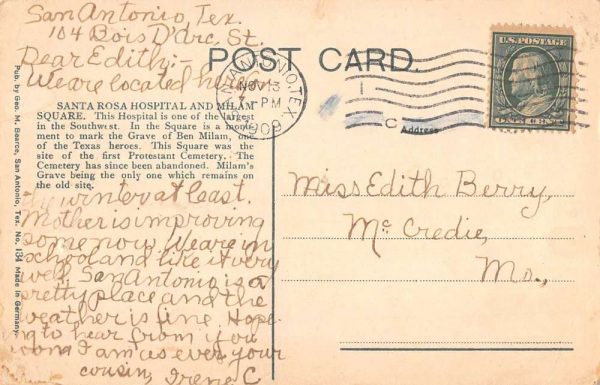 San Antonio, Tex.
104 Bois D'Arc. St.
Dear Edith:-
We are located here
POST CARD.
SAN ANTONIO, TEX.
NOV 13
7 PM
1909
1
C
U.S. POSTAGE
ONE CENT
SANTA ROSA HOSPITAL AND MILAM
SQUARE. This Hospital is one of the largest
in the Southwest. In the Square is a monu-
ment to mark the Grave of Ben Milam, one
of the Texas heroes. This Square was the
site of the first Protestant Cemetery. The
Cemetery has since been abandoned. Milam's
Grave being the only one which remains on
the old site.
the winter at least.
Mother is improving
some now. We are in
school and like it very
well, San Antonio is a
pretty place and the
weather is fine. Hope-
ing to hear from you
soon I am as ever your
cousin, Irene C
Pub. by Geo. M. Bearce, San Antonio, Tex. No. 134 Made in Germany.
Address
Miss Edith Berry,
McCredie,
Mo.,